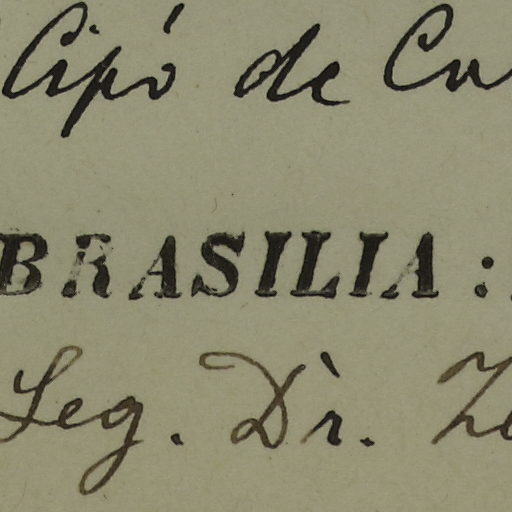 Cipó de
BRASILIA :
Leg. Dr.